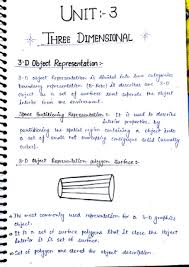 UNIT:-3
THREE DIMENSIONAL
3-D Object Representation:-
3-D object Representation is divided into two categories
boundary representation (B-Reps) it describes a 3-D
object as a set of surfaces that separate the object
interior from the environment.
Space Partitioning Representation :- It is used to describe
interior properties, by
partitioning the spatial region containing an object into
a set of small, non overlapping contiguous solid (usually
cubes).
3-D Object Representation polygon surface :-
The most commonly used representation for a 3-D graphics
object.
It is a set of surface polygons that it close the object
interior it is set of surface.
Set of polygon are stored for object description